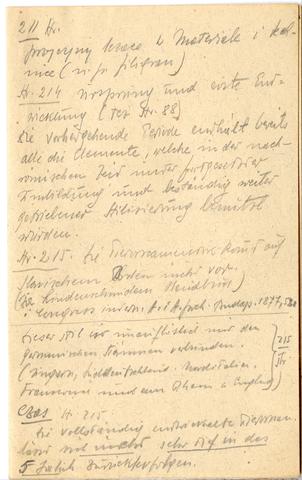 211 Str.
precyzyj kraca w materiale i kol-
nice (n. p. filigran)
Str. 214 Ursprung und erste Ent-
wicklung (Tex Str. 88)
Die vorhergehende Periode enthält bereits
alle die Elemente, welche in der nach-
römischen Zeit unter fortgesetzter
Umbildung und beständig weiter
getriebener Stilisierung benützt
würden.
Str. 215. Die Tierornamentik kommt auf
Slavischem Boden nicht vor.
Lindenschmidt Handbuch
Congress intern. d. A. Budap. 1877, 520
Dieser Stil ist unauflöslich mit den
germanischen Stämmen verbunden.
(Ungarn, Süddeutschland, Norditalien,
Frankreich und am Rhein u. England)
215
Str
Czas Str. 215.
Die vollständig entwickelte Tierornam.
lässt sich nicht sehr tief in das
5 Jahrh zurückverfolgen.